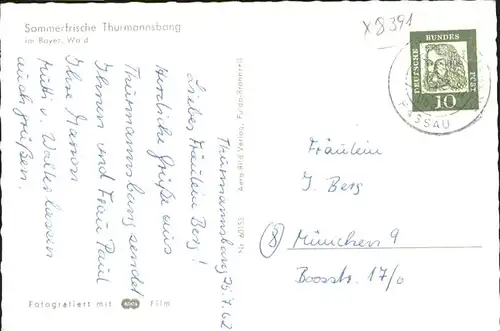 Sommerfrische Thurmannsbang
im Bayer. Wald
x 8391
DEUTSCHE BUNDESPOST
10
PASSAU
Thurmannsbang 25.7.62
Liebes Fräulein Berg!
Herzliche Grüße aus
Thurmannsbang sendet
Ihnen und Frau Paul
Ihre Mamm
Mutti u. Walter lassen
auch grüßen.
Fräulein
J. Berg
(8) München 9
Boosstr. 17/0
Aero-Bild-Verlag, Fulda
Fotografiert mit Adox Film